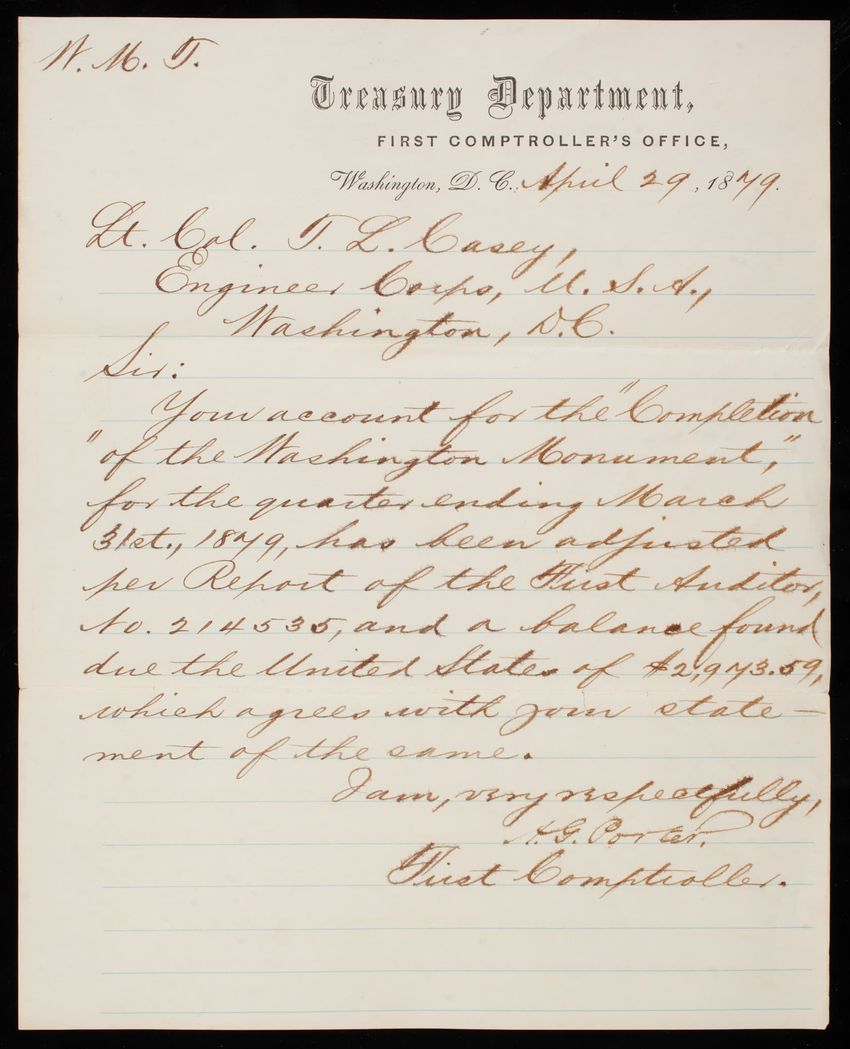 W. M. T.
Treasury Department,
FIRST COMPTROLLER'S OFFICE,
Washington, D. C., April 29, 1879.
Lt. Col. T. L. Casey,
Engineer Corps, U. S. A.,
Washington, D.C.
Sir:
Your account for the "Completion
"of the Washington Monument,"
for the quarter ending March
31st., 1879, has been adjusted
per Report of the First Auditor,
No. 214535, and a balance found
due the United States of $2,973.59,
which agrees with your state-
ment of the same.
I am, very respectfully,
A. G. Porter.
First Comptroller.